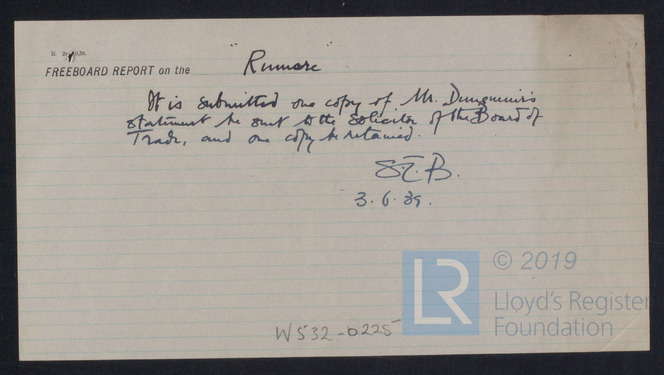 FREEBOARD REPORT on the "Rumore"
It is submitted one copy of Mr.
statement be sent to the Solicitor of the Board of
Trade, and one copy be retained.
S.E.B.
3.6.39.
© 2019
LR
Lloyd's Register
Foundation
W532-0225